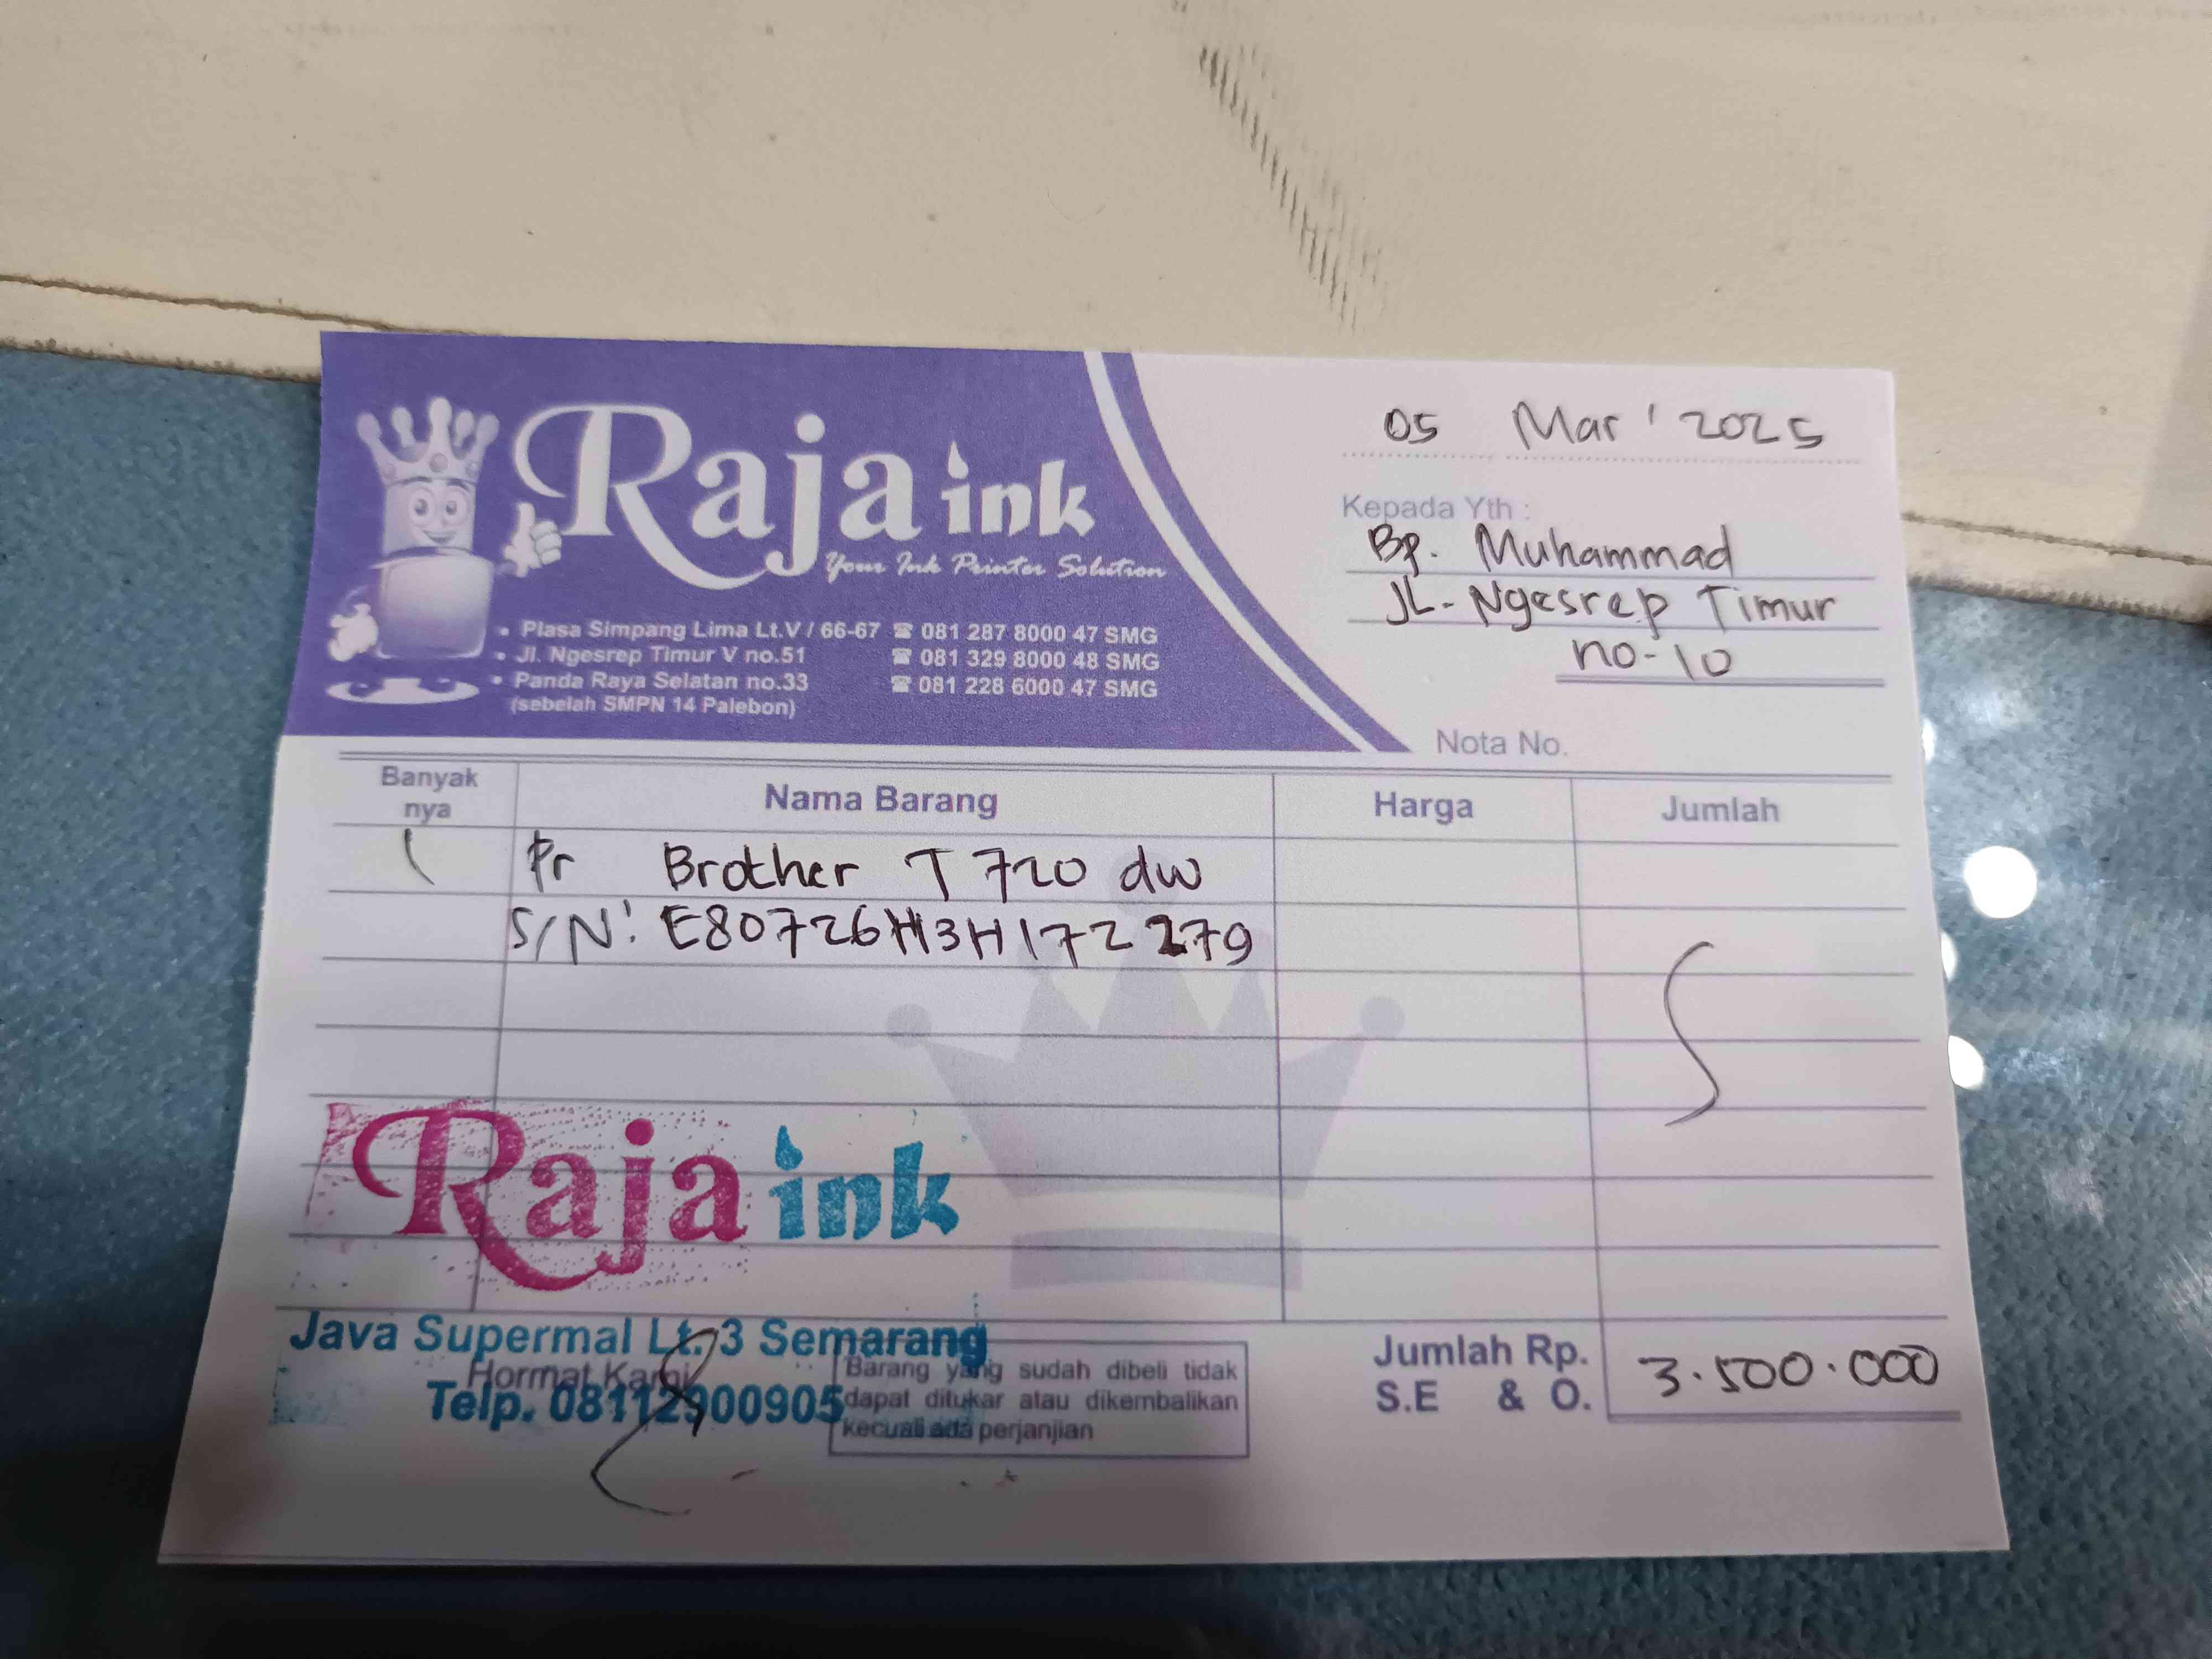 Raja ink
Your Ink Printer Solution
• Plasa Simpang Lima Lt.V / 66-67 ☎ 081 287 8000 47 SMG
• Jl. Ngesrep Timur V no.51 ☎ 081 329 8000 48 SMG
• Panda Raya Selatan no.33 ☎ 081 228 6000 47 SMG
(sebelah SMPN 14 Palebon)
05 Mar ' 2025
Kepada Yth :
Bp. Muhammad
JL. Ngesrep Timur
no-10
Nota No.
Banyak nya Nama Barang Harga Jumlah
1 Pr Brother T 720 dw
S/N: E80726H3H172279
Raja ink
Java Supermal Lt. 3 Semarang
Hormat Kami
Telp. 08112900905
Barang yang sudah dibeli tidak
dapat ditukar atau dikembalikan
kecuali ada perjanjian
Jumlah Rp. 3.500.000
S.E & O.